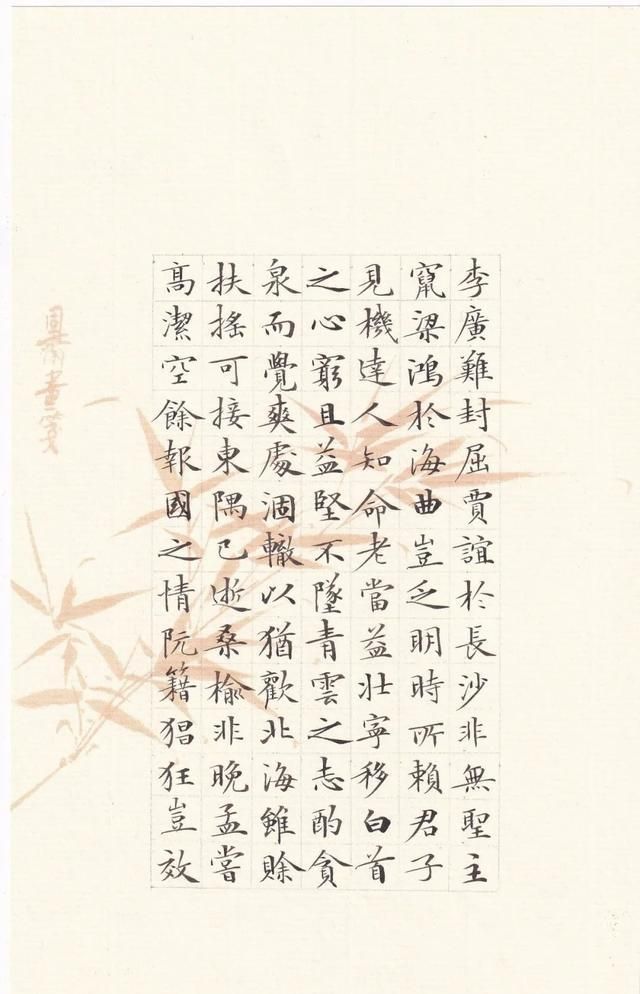 李廣難封屈賈誼於長沙非無聖主
竄梁鴻於海曲豈乏明時所賴君子
見機達人知命老當益壯寧移白首
之心窮且益堅不墜青雲之志酌貪
泉而覺爽處涸轍以猶歡北海雖賒
扶搖可接東隅已逝桑榆非晚孟嘗
髙潔空餘報國之情阮籍猖狂豈效
畫箋